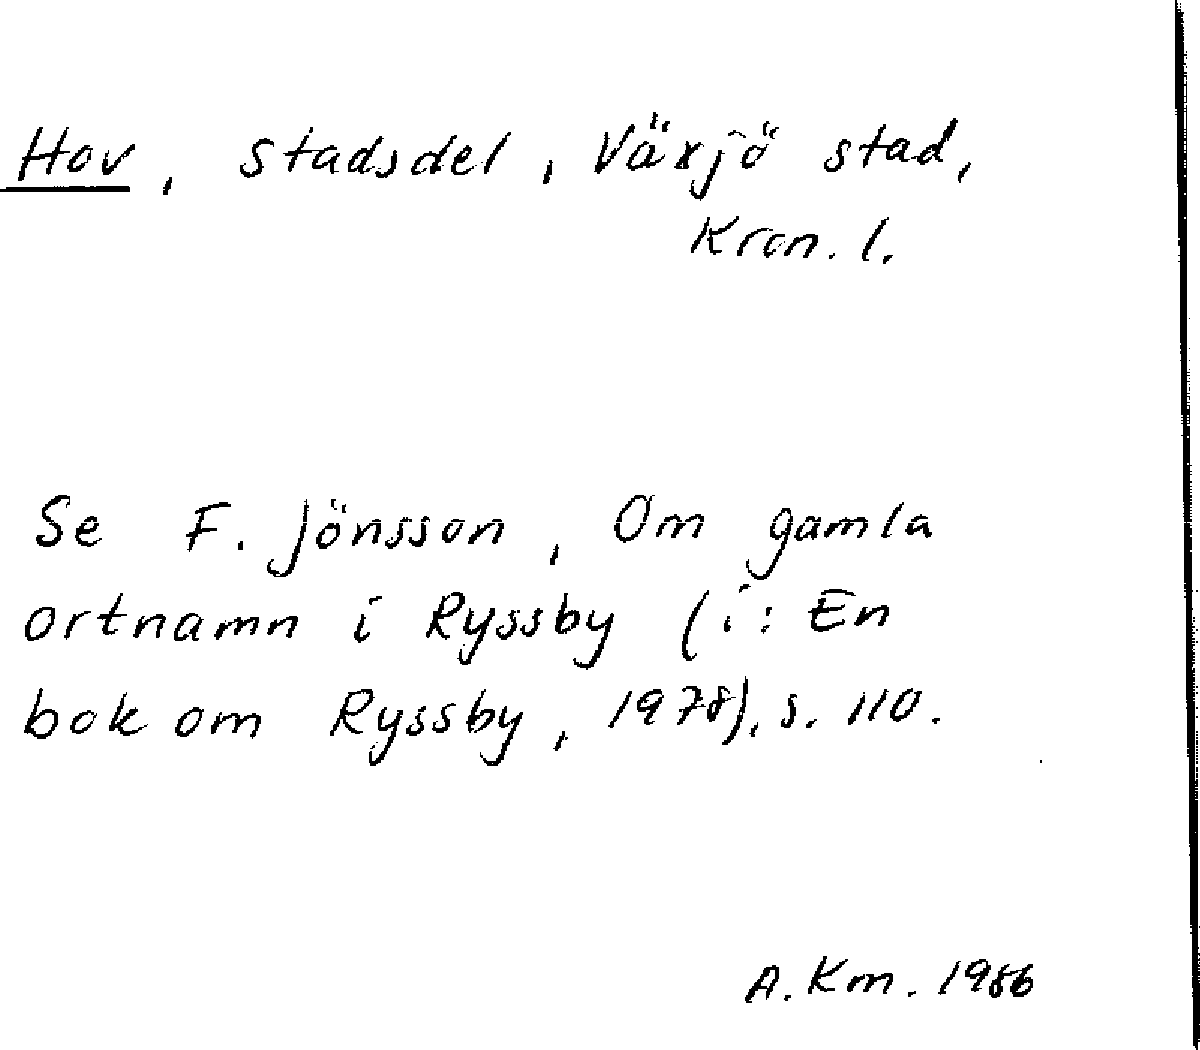 Hov, stadsdel, Växjö stad,
Kron. l.
Se F. Jönsson, Om gamla
ortnamn i Ryssby (i: En
bok om Ryssby, 1978), s. 110.
A. Km. 1986